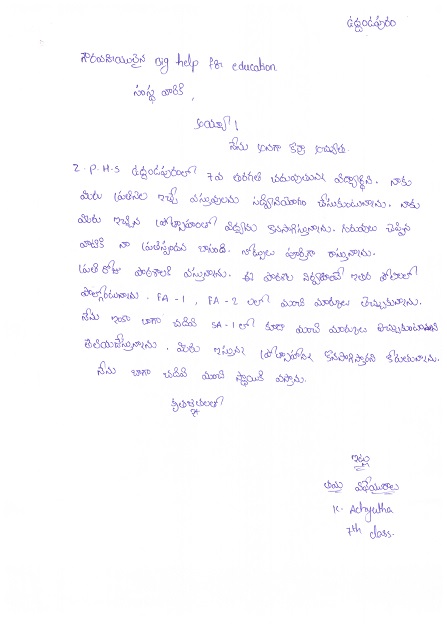 ఉద్దండపురం
గౌరవనీయులైన Big help for education
సంస్థ వారికి,
అయ్యా!
నేను అనగా కొర్రా అచ్యుత.
Z-P-H-S ఉద్దండపురంలో 7వ తరగతి చదువుతున్న విద్యార్థిని. నాకు
మీరు ప్రతినెల ఇచ్చే వస్తువులను సద్వినియోగం చేసుకుంటున్నాను. నాకు
మీరు ఇచ్చిన ప్రోత్సాహంలో విద్యను కొనసాగిస్తున్నాను. గురువులు చెప్పిన
వాటికి నా ప్రతిస్పందన బాగుంది. నోట్సులు పూర్తిగా రాస్తున్నాను.
ప్రతి రోజు పాఠశాలకి వస్తున్నాను. ఈ పాఠశాల నిర్వహించే ఇతర పోటీలలో
పాల్గొంటున్నాను. FA-1, FA-2 లలో మంచి మార్కులు తెచ్చుకున్నాను.
నేను ఇంకా బాగా చదివి SA-1లో కూడా మంచి మార్కులు తెచ్చుకుంటానని
తెలియజేస్తున్నాను. మీరు ఇస్తున్న ప్రోత్సాహాన్ని కొనసాగిస్తారని కోరుతున్నాను.
నేను బాగా చదివి మంచి స్థాయికి వస్తాను.
కృతజ్ఞతలతో
ఇట్లు
తమ విధేయురాలు
K. Achyutha
7th class.